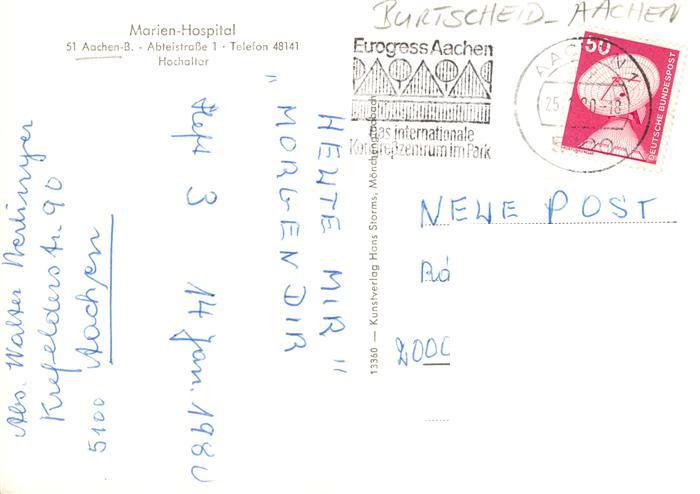 BURTSCHEID - AACHEN
Marien-Hospital
51 Aachen-B. - Abteistraße 1 · Telefon 48141
Hochaltar
Eurogress Aachen
Das internationale
Kongreßzentrum im Park
AACHEN 1
50
DEUTSCHE BUNDESPOST
13360 — Kunstverlag Hans Storms, Mönchengladbach
"HEUTE MIR"
"MORGEN DIR
Heft 3 14 Jan. 1980
Abs. Walter
Krefelderstr. 90
5100 Aachen
NEUE POST
2000